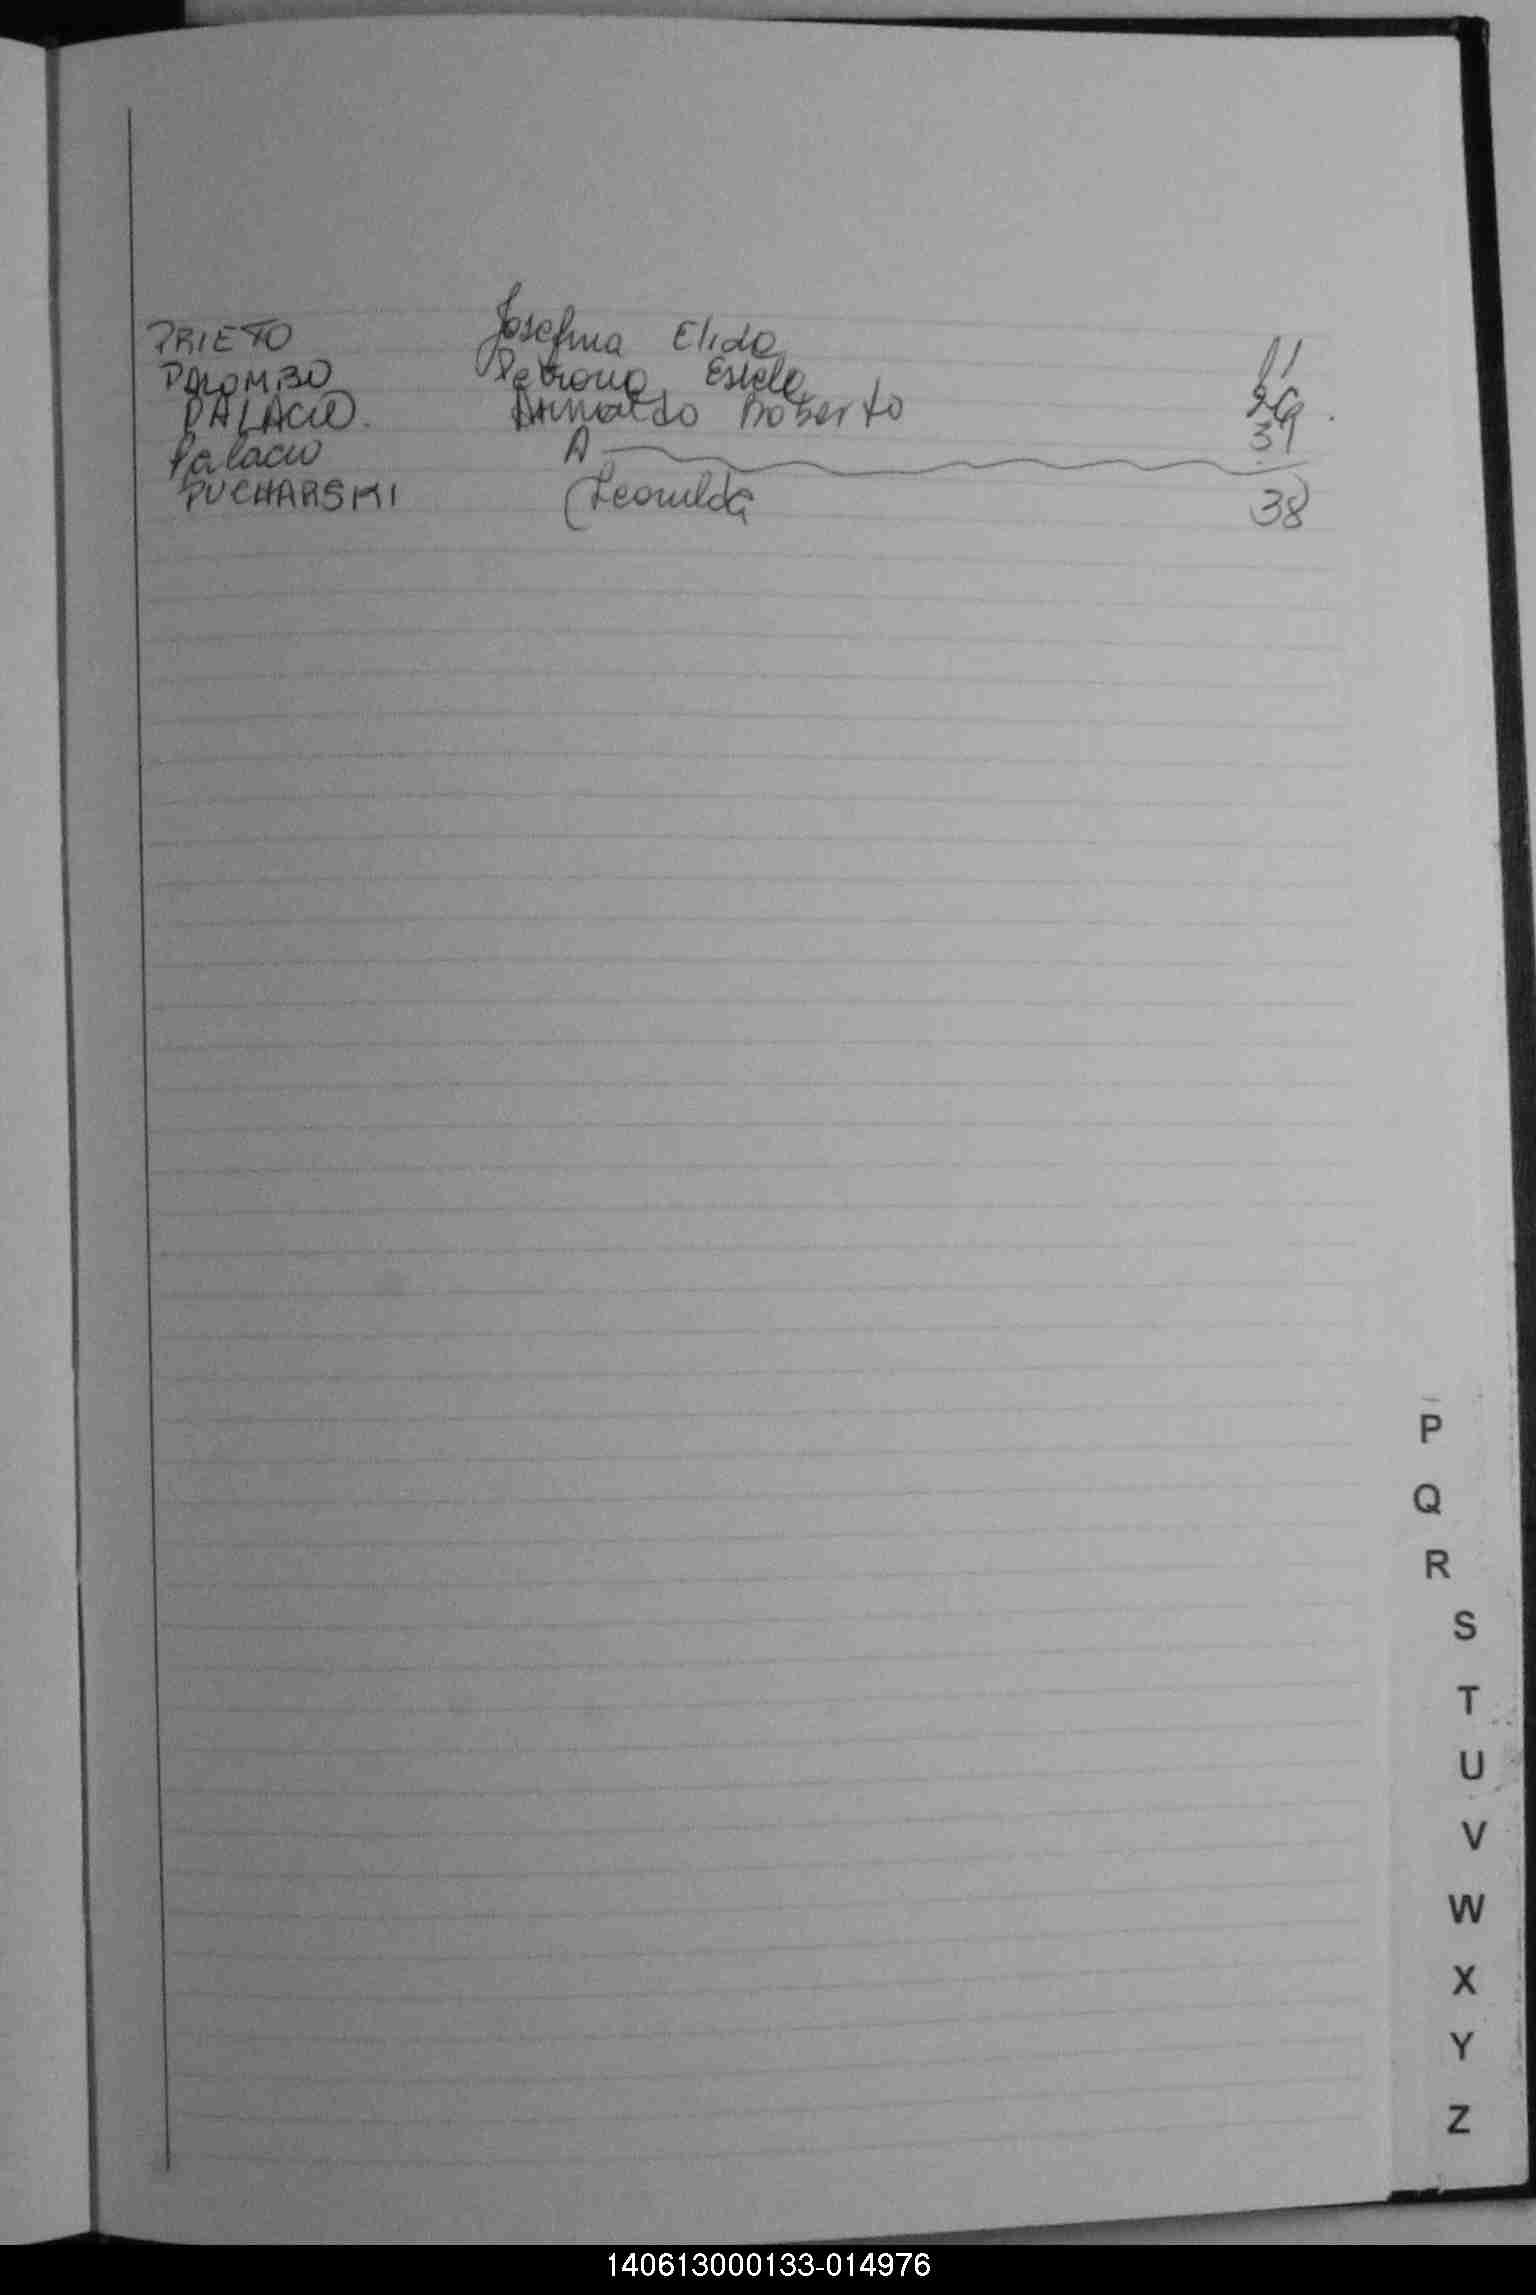 PRIETO Josefina Elida 11
PALOMBO Petrona Estela
PALACIO. Arnaldo Roberto 29.
Palacio A 39
PUCHARSKI Leonilda 38
P
Q
R
S
T
U
V
W
X
Y
Z
140613000133-014976